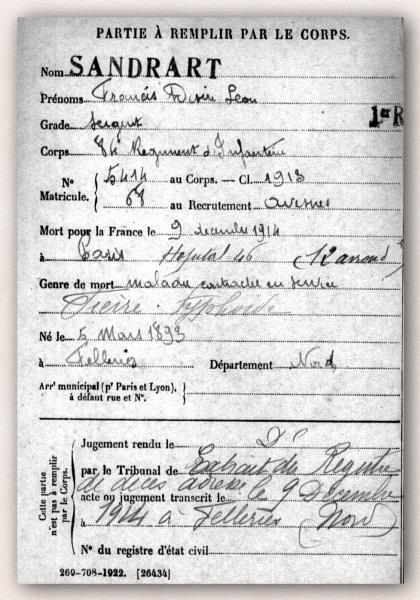 PARTIE À REMPLIR PAR LE CORPS.
Nom SANDRART
Prénoms Francis Désiré Léon
Grade Sergent
1er R
Corps 84 Regiment d'Infanterie
N° Matricule. 5414 au Corps. — Cl. 1913
68 au Recrutement Avesnes
Mort pour la France le 9 décembre 1914
à Paris Hopital 46 (12 arrond
Genre de mort maladie contractée en service
Fièvre typhoïde
Né le 5 Mars 1893
à Felleries Département Nord
Arrt municipal (pr Paris et Lyon),
à défaut rue et N°.
Cette partie n'est pas à remplir par le Corps.
Jugement rendu le
par le Tribunal de Extrait du Registre
de décès adressé le 9 Décembre
acte ou jugement transcrit le
à 1914 à Felleries (Nord)
N° du registre d'état civil
269-708-1922. [26434]